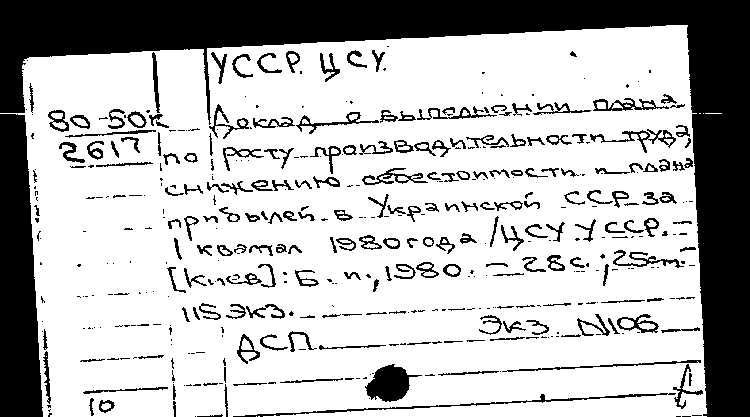 УССР. ЦСУ.
80-50к Доклад о выполнении плана
2617 по росту производительности труда,
снижению себестоимости и плана
прибылей в Украинской ССР за
I квартал 1980 года /ЦСУ УССР. –
[Киев]: Б. и., 1980. – 28 с.; 25 см. –
115 экз.
ДСП. Экз N106
10